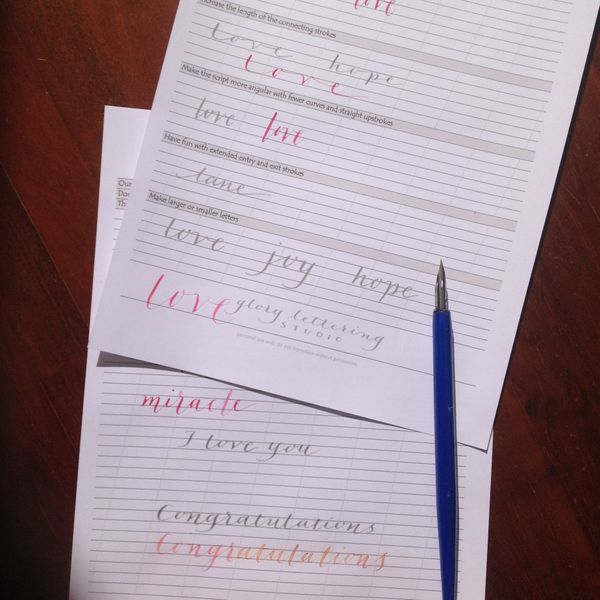 love
Increase the length of the connecting strokes
love hope
love
Make the script more angular with fewer curves and straight upstrokes
love love
Have fun with extended entry and exit strokes
tane
Make larger or smaller letters
love joy hope
love glory lettering
STUDIO
personal use only, do not reproduce without permission
Our
Do
Th
miracle
I love you
Congratulations
Congratulations